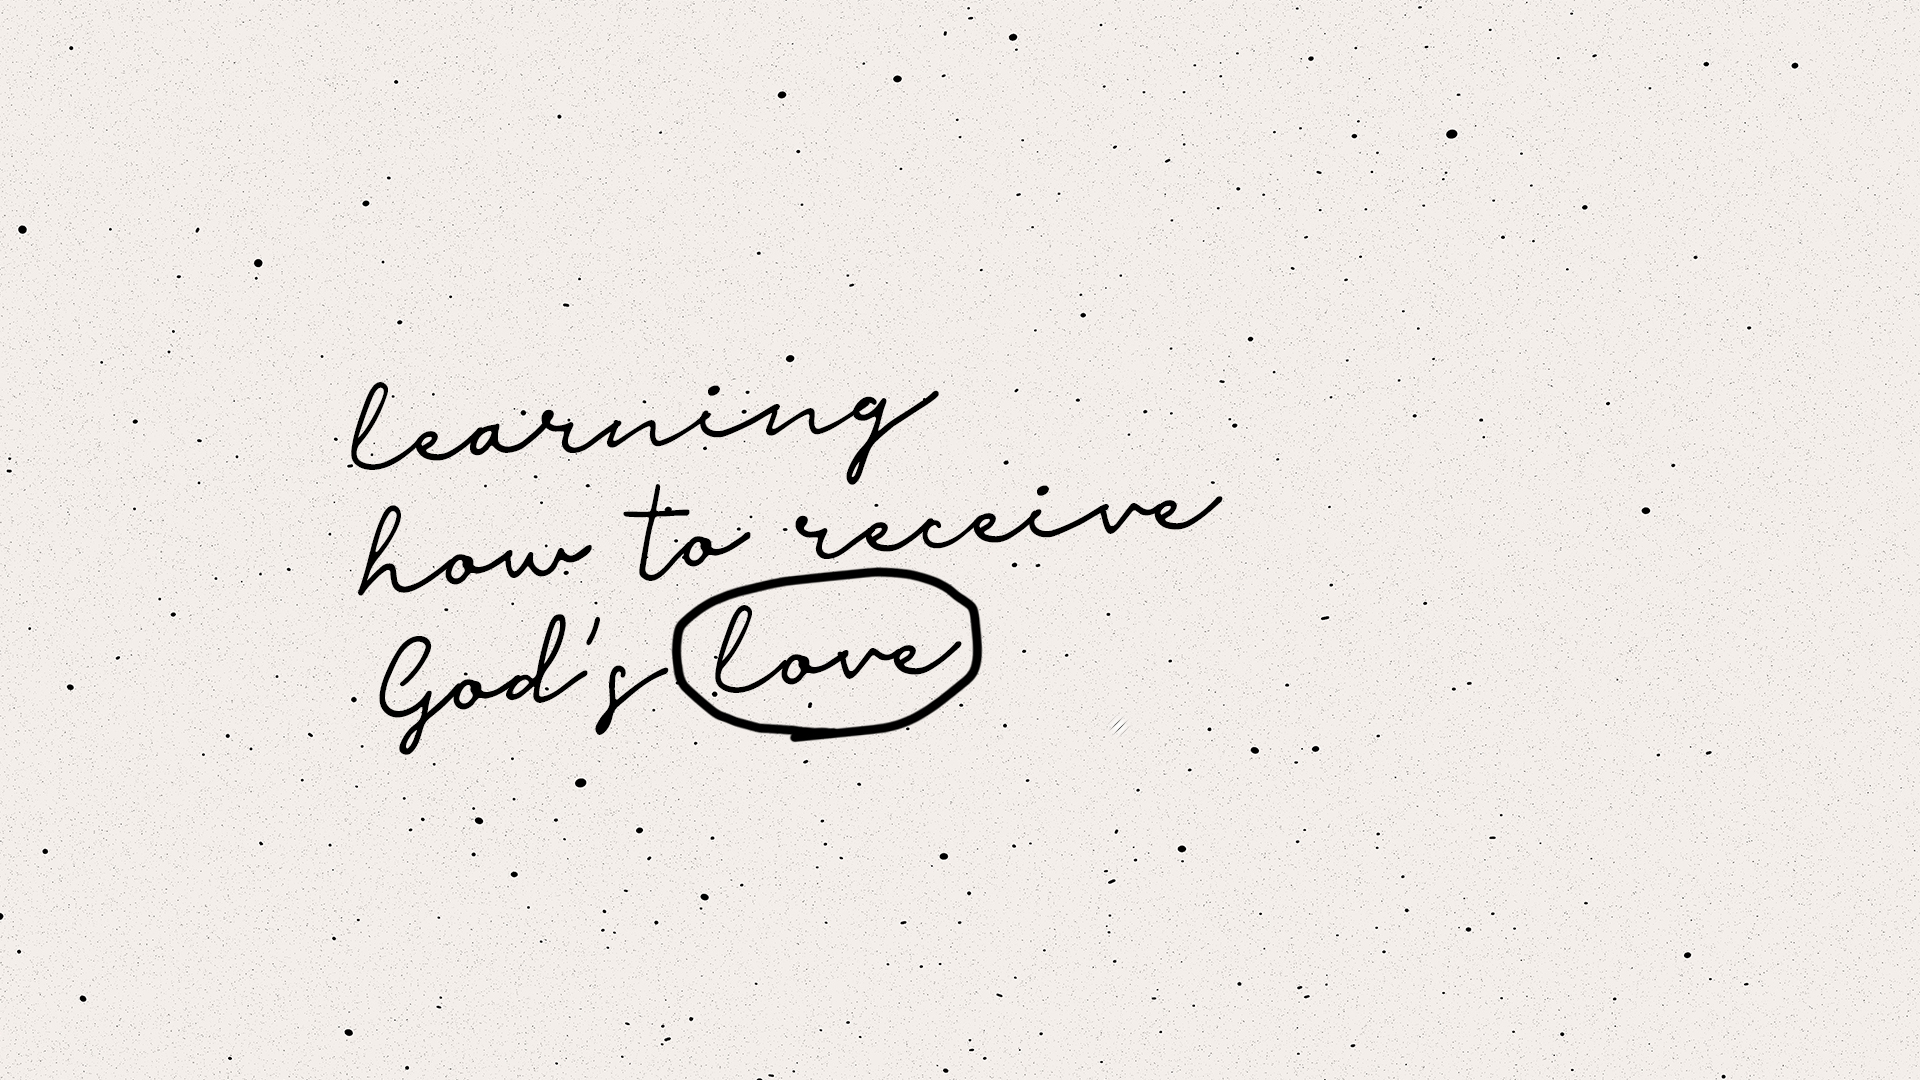 learning
how to receive
God's love